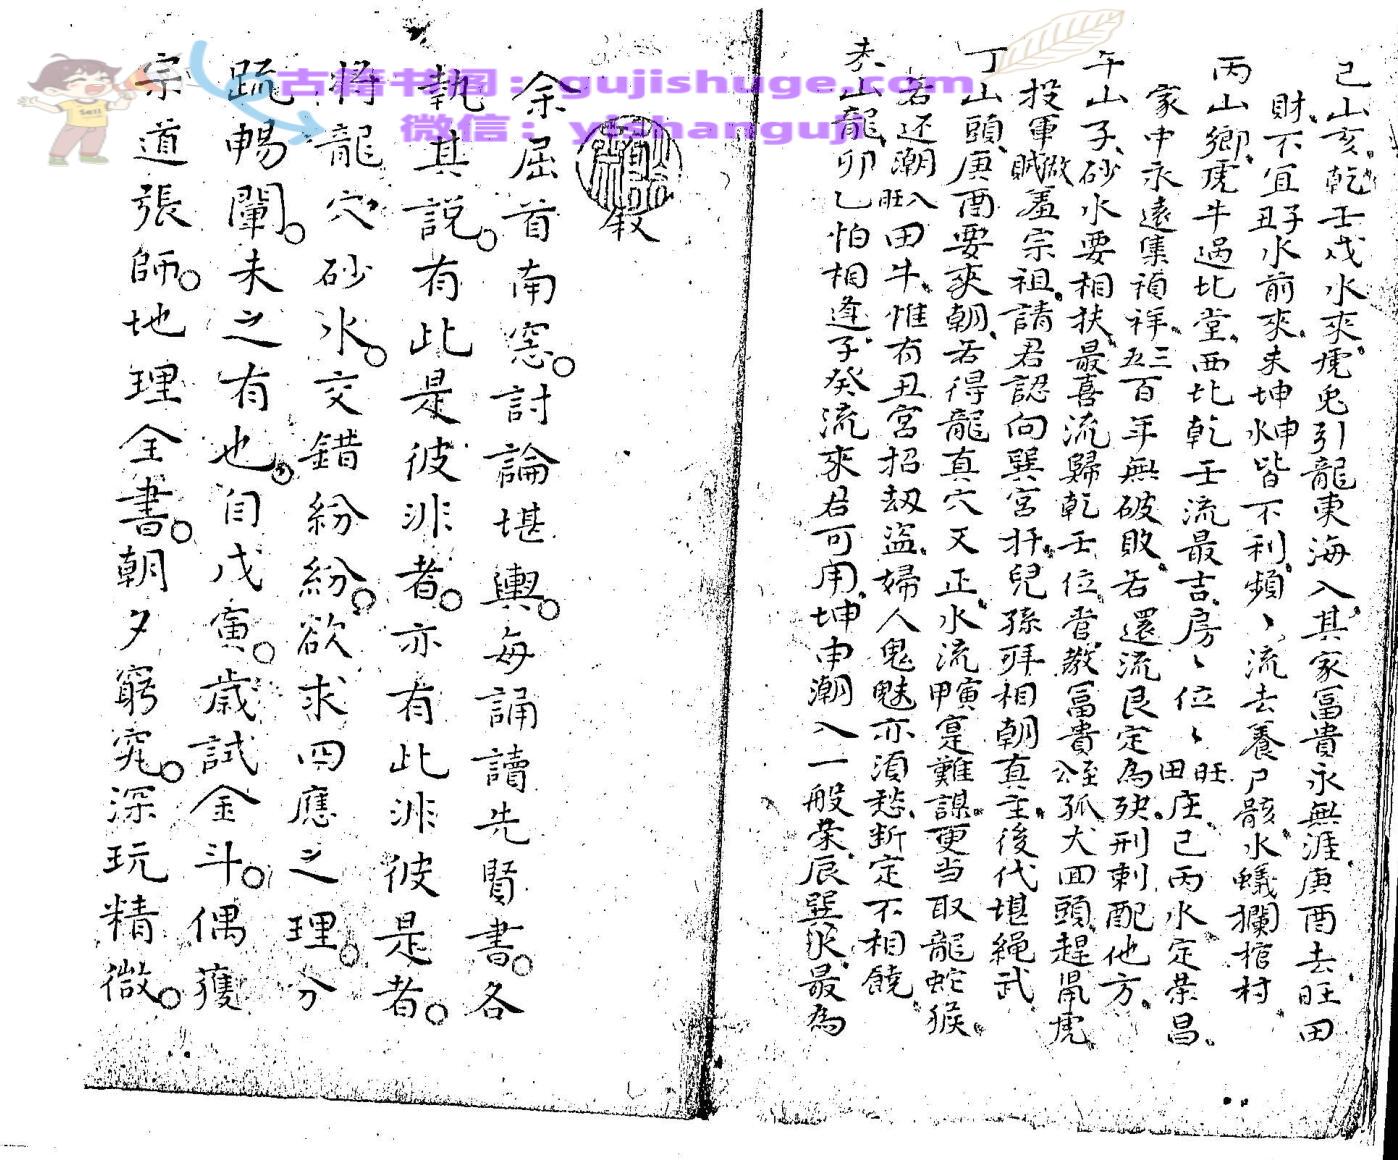 巳山亥乾壬戌水來虎兔引龍東海入其家冨貴永無涯庚酉去旺田
財不宜丑子水前來未坤坤申水皆不利頻、流去養尸骸水蟻攔棺材
丙山鄉虎牛過北堂西北乾壬流最吉房、位、旺田庄巳丙水定荣昌
家中永遠集禎祥三五百年無破敗若還流艮定為殃刑剌配他方
午山子砂水要相扶最喜流歸乾壬位管教冨貴至公孤犬回頭趕鼠虎
投軍做賊羞宗祖請君認向巽宮扦兒孫拜相朝真主後代堪繩武
丁山頭庚酉要來朝若得龍真穴又正水流寅甲寔難謀更当取龍蛇猴
若还潮入旺田牛惟有丑宮招刼盗婦人鬼魅亦湏愁断定不相饒
未山龍卯乙怕相逢子癸流來君可用坤申潮入一般荣辰巽水最為
叙
余屈首南窓討論堪輿每誦讀先賢書各
執其說有此是彼非者亦有此非彼是者
将龍穴砂水交錯紛紛欲求四應之理分
䟽暢闡未之有也自戊寅歲試金斗偶獲
宗道張師地理全書朝夕窮究深玩精微
古籍书图：gujishuge.com
微信：yishanguji